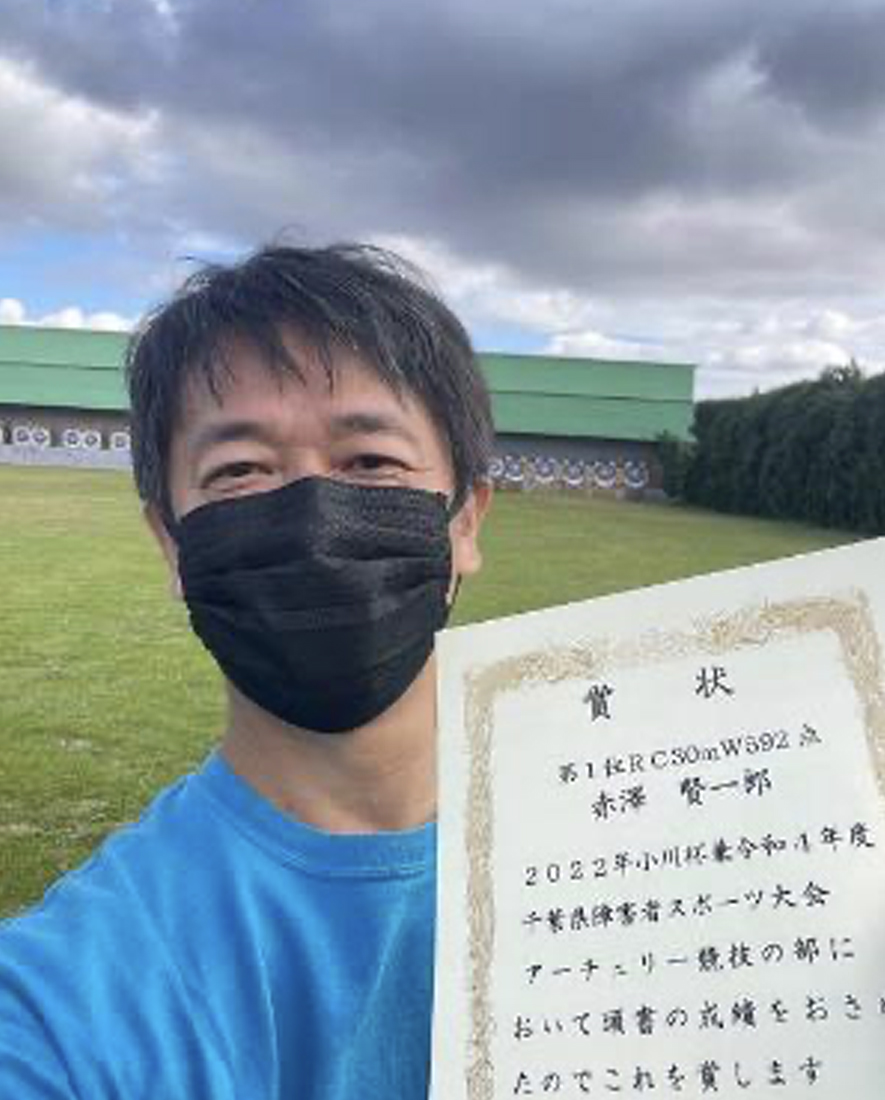 賞 状
第1位RC30mW592点
赤澤 賢一郎
2022年小川杯兼令和4年度
千葉県障害者スポーツ大会
アーチェリー競技の部に
おいて頭書の成績をおさめ
たのでこれを賞します